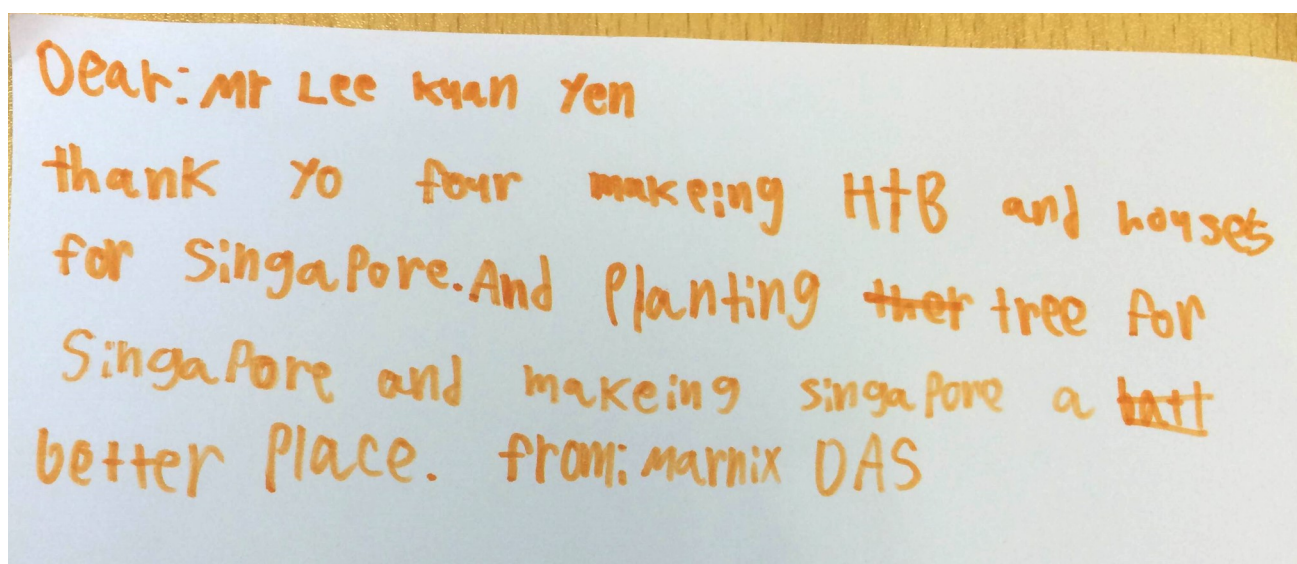 Dear: Mr Lee kuan Yen
thank yo four makeing HtB and houses
for Singapore. And Planting ther tree for
Singapore and makeing singapore a batt
better Place. from: Marnix DAS